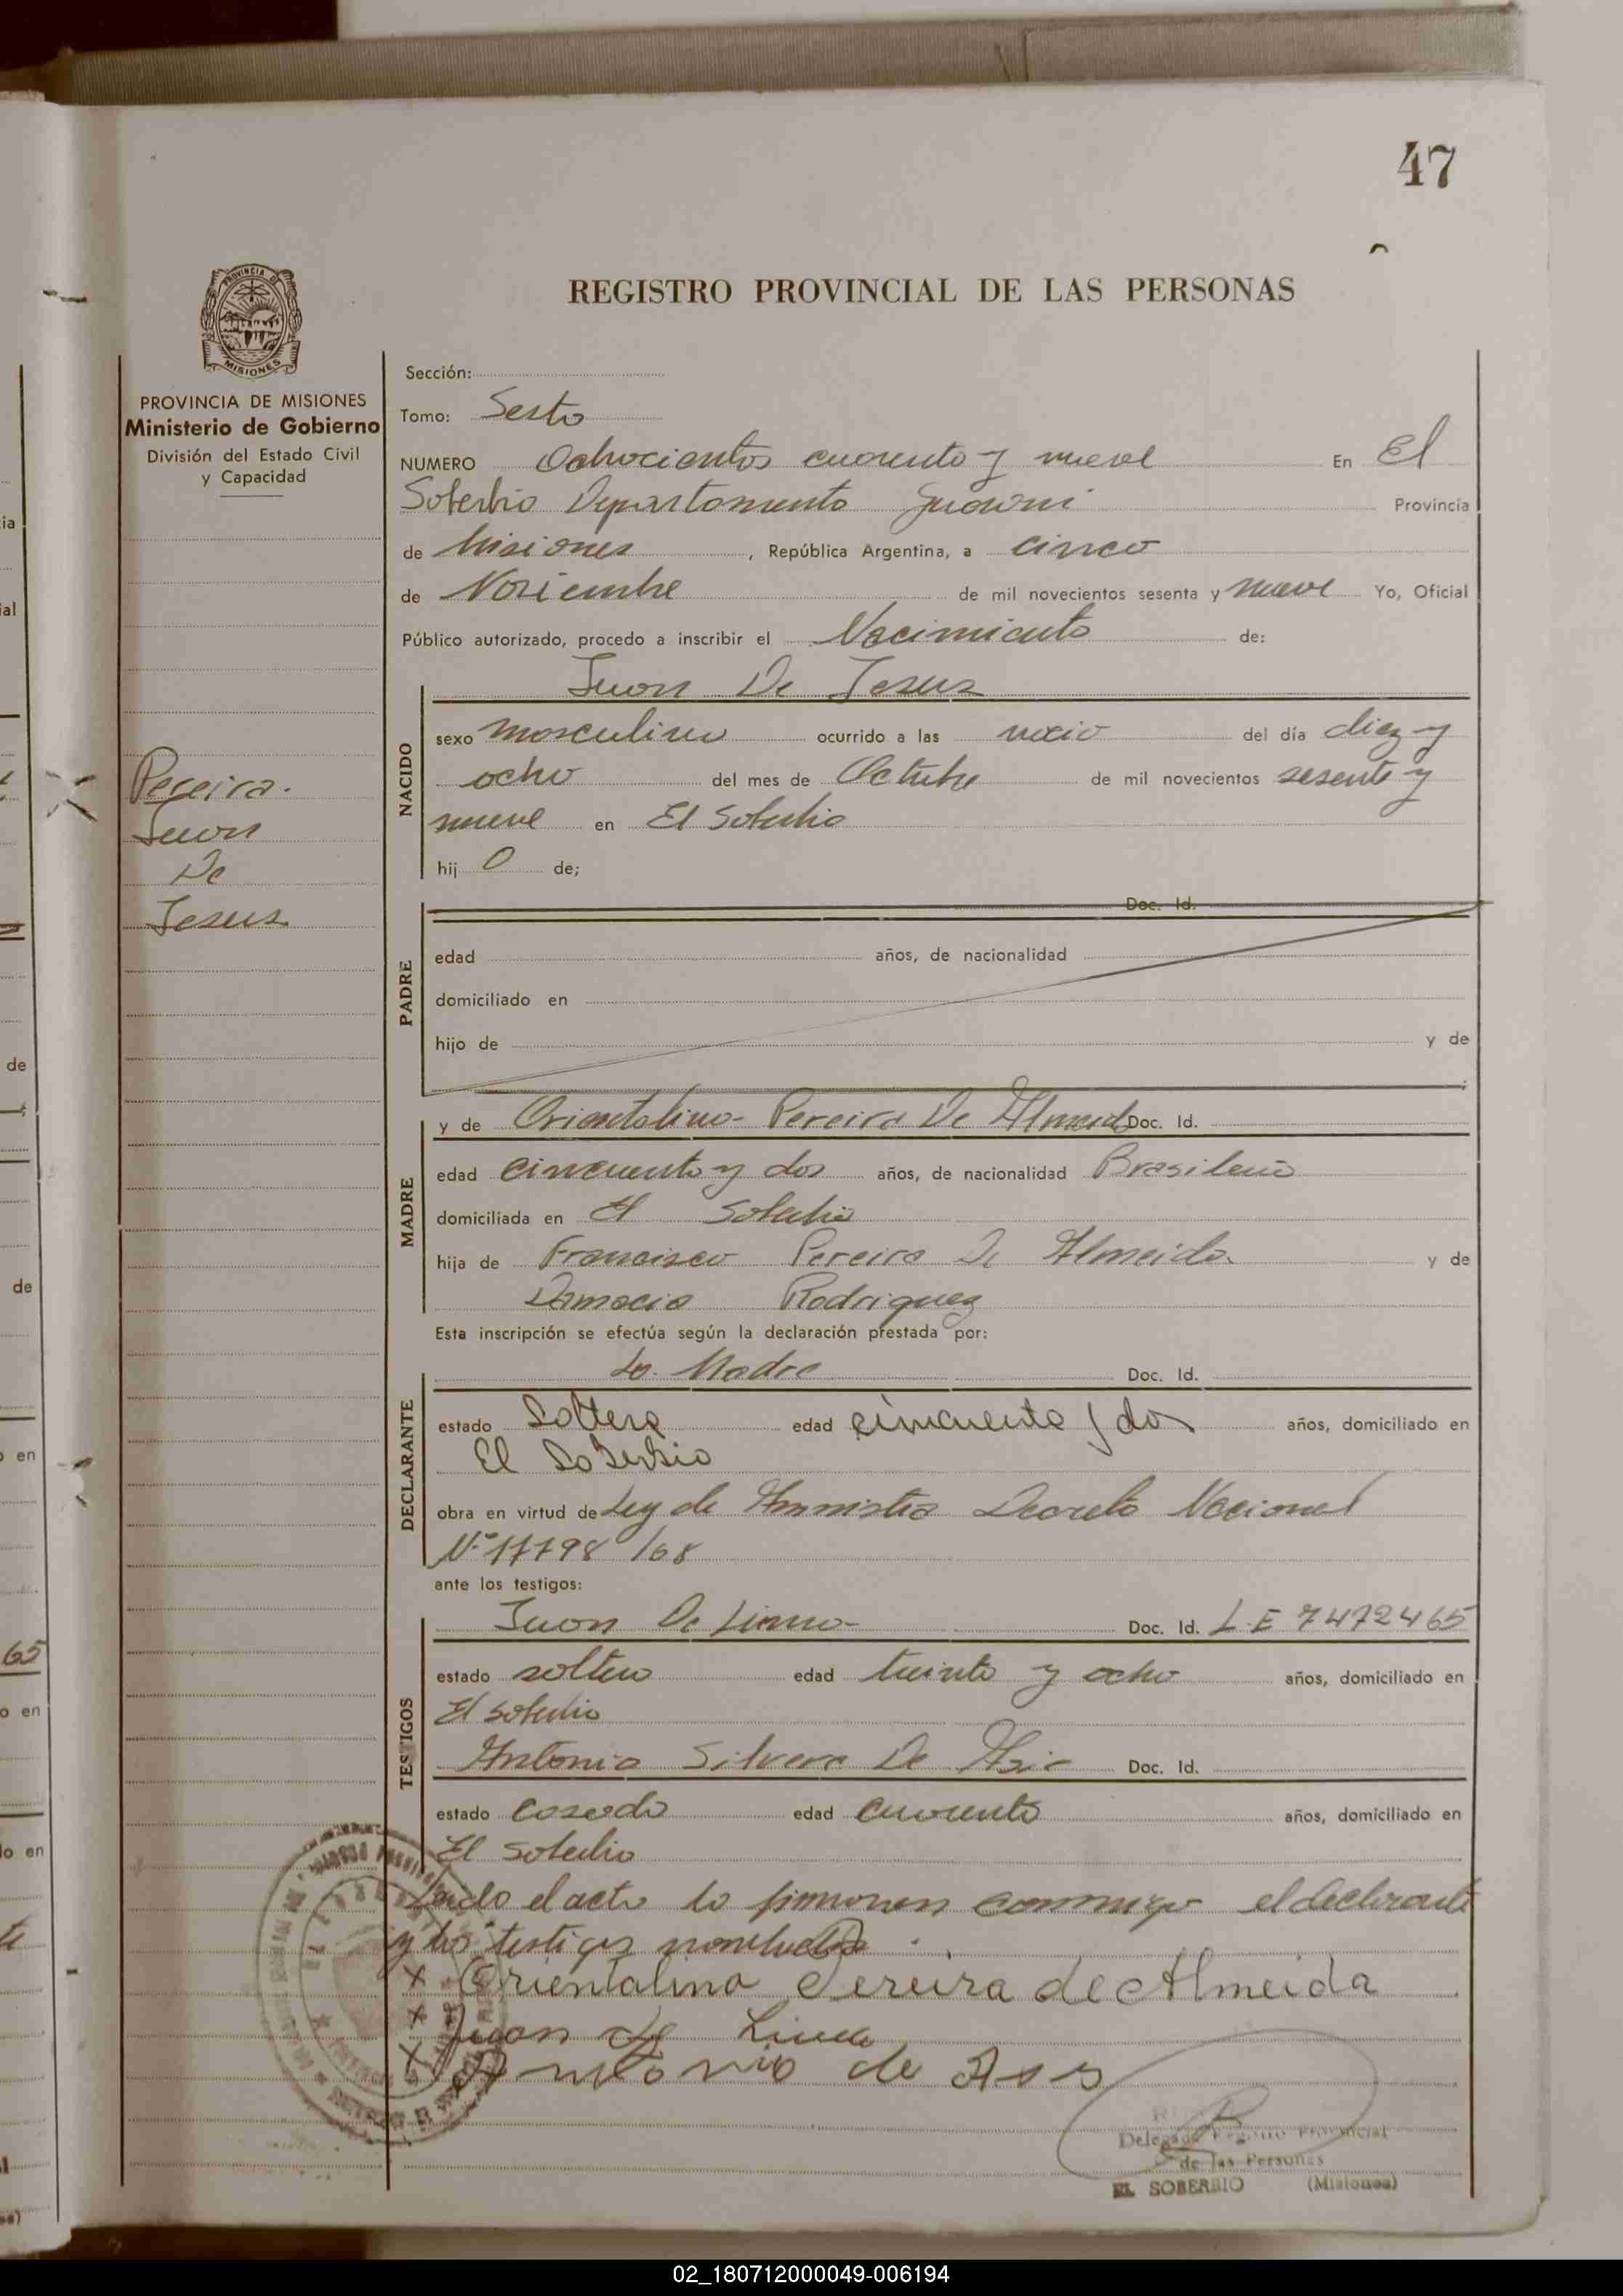 47
REGISTRO PROVINCIAL DE LAS PERSONAS
PROVINCIA DE
MISIONES
PROVINCIA DE MISIONES
Ministerio de Gobierno
División del Estado Civil
y Capacidad
Pereira.
Juan
De
Jesus
Sección:
Tomo: Sesto
NUMERO Ochocientos cuarenta y nueve En El
Soberbio Departamento Guarani Provincia
de Misiones, República Argentina, a cinco
de Noviembre de mil novecientos sesenta y nueve Yo, Oficial
Público autorizado, procedo a inscribir el Nacimiento de:
Juan De Jesus
NACIDO
sexo masculino ocurrido a las del día diez y
ocho del mes de Octubre de mil novecientos sesenta y
nueve en El Soberbio
hij o de;
PADRE
Doc. Id.
edad años, de nacionalidad
domiciliado en
hijo de y de
MADRE
y de Orientalina Pereira De Almeida Doc. Id.
edad cincuenta y dos años, de nacionalidad Brasileña
domiciliada en El Soberbio
hija de Francisco Pereira De Almeida y de
Damacia Rodriguez
Esta inscripción se efectúa según la declaración prestada por:
La Madre Doc. Id.
DECLARANTE
estado Soltera edad cincuenta y dos años, domiciliado en
El Soberbio
obra en virtud de Ley de Amnistia Decreto Nacional
Nº 17798/68
ante los testigos:
TESTIGOS
Juan De Lima Doc. Id. L.E 7472465
estado soltero edad treinta y ocho años, domiciliado en
El Soberbio
Antonio Silvera De Doc. Id.
estado casado edad cuarenta años, domiciliado en
El Soberbio
Leido el acta la firman conmigo el declarante
y los testigos
x Orientalina Pereira de Almeida
x Juan de Lima
x Antonio de
Delegado Registro Provincial
de las Personas
EL SOBERBIO (Misiones)
02_180712000049-006194